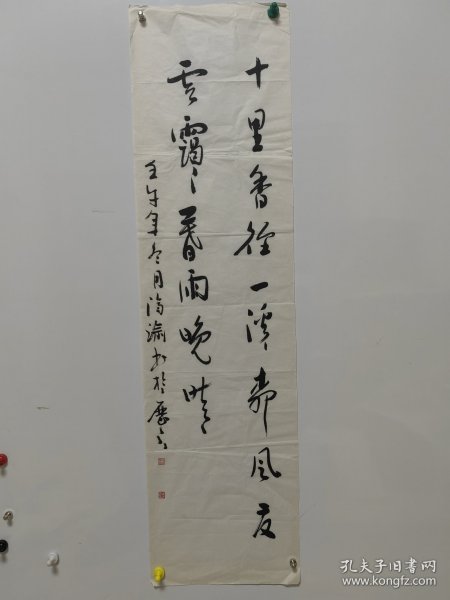 十里香径一溪
风
云霭霭暮雨晚晴
壬午年冬月
书于历下
孔夫子旧书网
www.kongfz.com